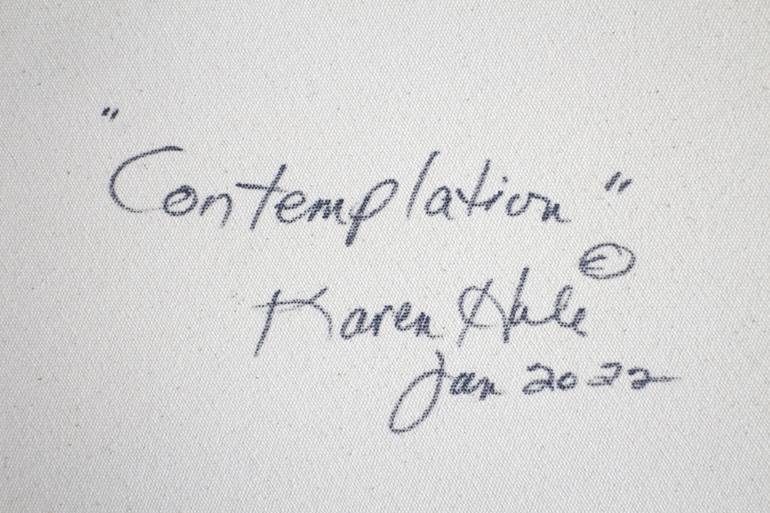 "Contemplation"
©
Karen Hale
Jan 2022